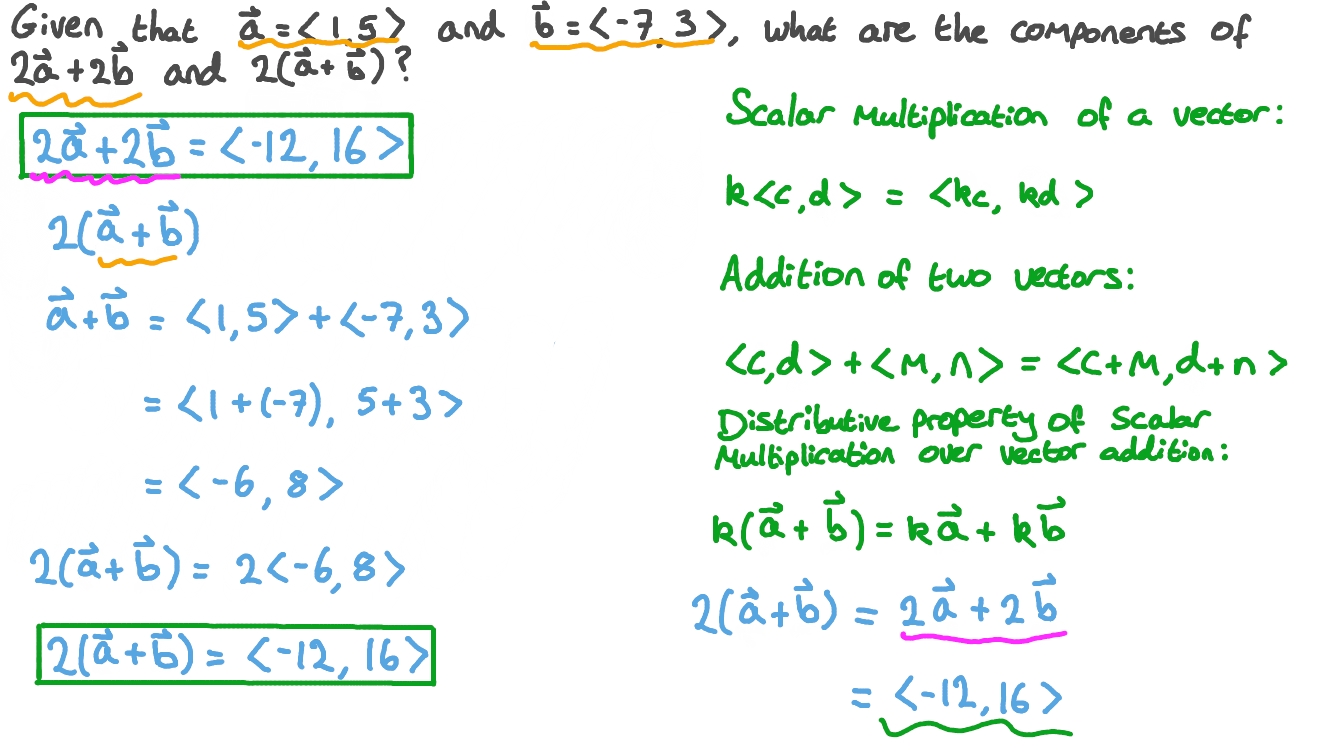 Given that a⃗ = <1,5> and b⃗ = <-7,3>, what are the components of
2a⃗ + 2b⃗ and 2(a⃗ + b⃗)?
2a⃗ + 2b⃗ = <-12, 16>
2(a⃗ + b⃗)
a⃗ + b⃗ = <1,5> + <-7,3>
= <1 + (-7), 5+3>
= <-6, 8>
2(a⃗ + b⃗) = 2<-6,8>
2(a⃗ + b⃗) = <-12, 16>
Scalar Multiplication of a vector:
k<c,d> = <kc, kd>
Addition of two vectors:
<c,d> + <m,n> = <c+m,d+n>
Distributive property of Scalar
Multiplication over vector addition:
k(a⃗ + b⃗) = ka⃗ + kb⃗
2(a⃗ + b⃗) = 2a⃗ + 2b⃗
= <-12,16>